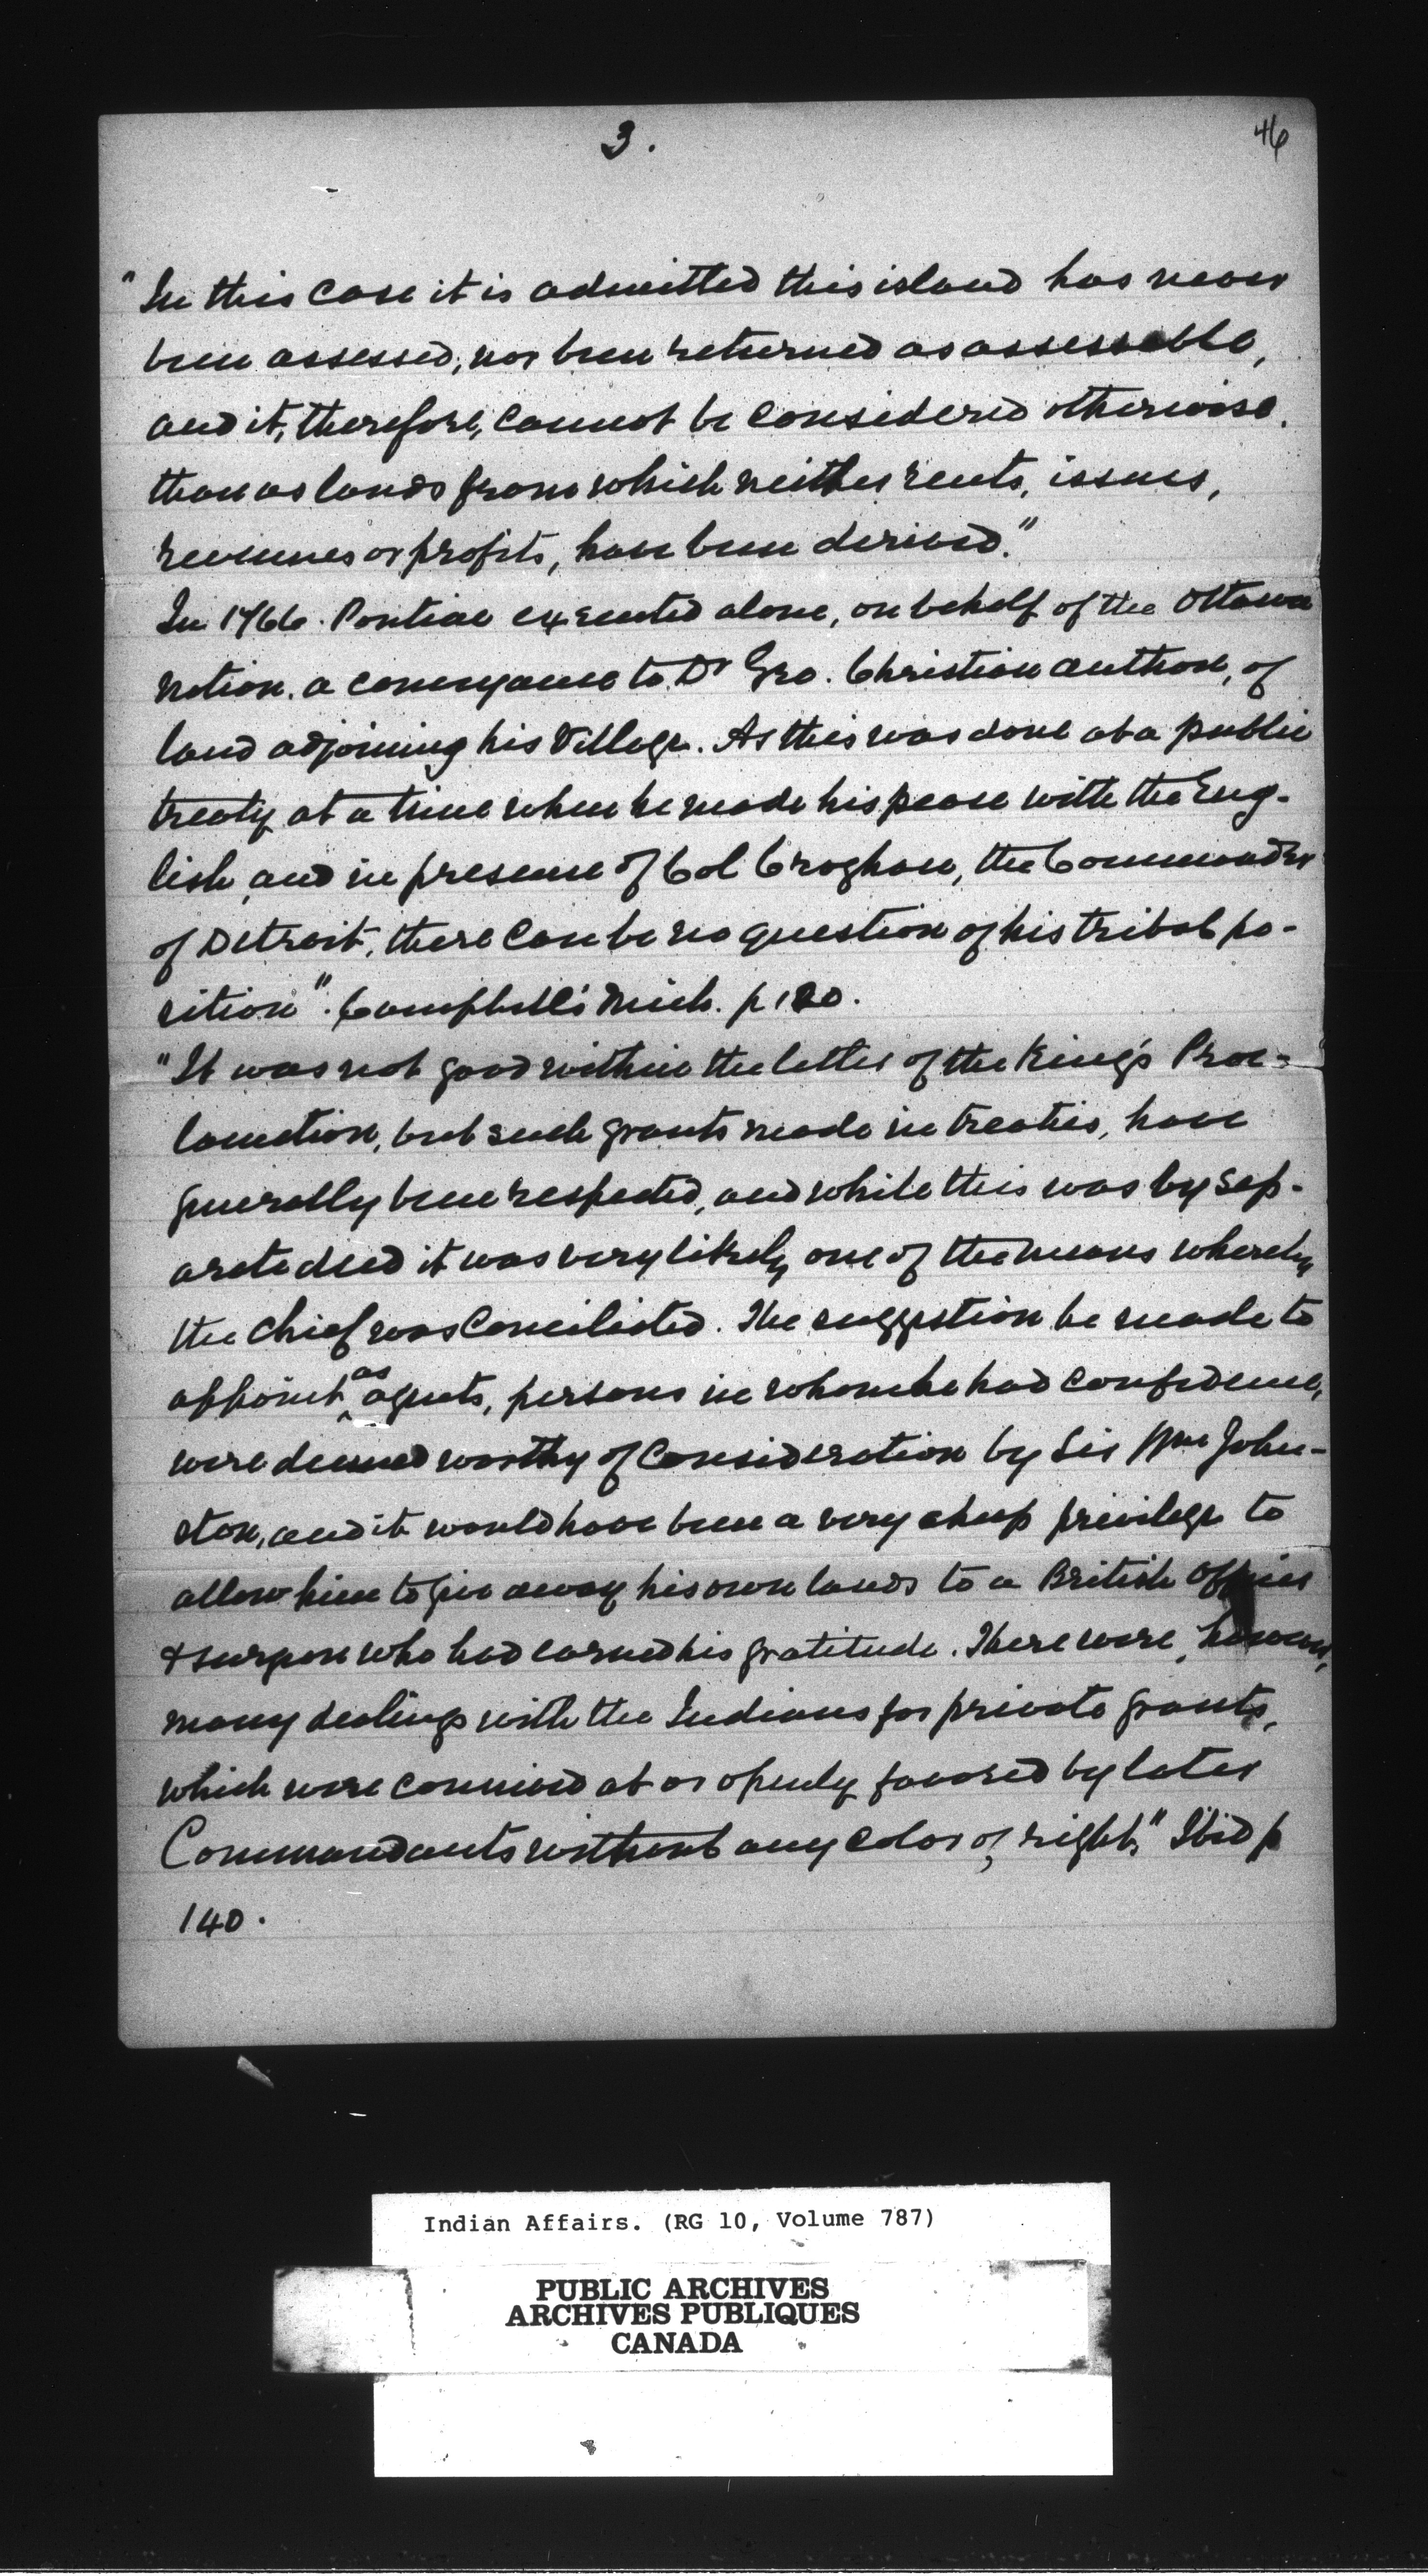 3.
46
"In this case it is admitted this island has never
been assessed, nor been returned as assessable,
and it, therefore, cannot be considered otherwise,
than as lands from which neither rents, issues,
revenues or profits, have been derived."
In 1766. Pontiac executed alone, on behalf of the Ottawa
nation. a conveyance to Dr Geo. Christian Anthon, of
land adjoining his Village. As this was done at a public
treaty at a time when he made his peace with the Eng-
lish, and in presence of Col Croghan, the Commander
of Detroit, there can be no question of his tribal po-
sition". Campbell's Mich. p 120.
"It was not good within the letter of the King's Proc-
lamation, but such grants made in treaties, have
generally been respected, and while this was by sep-
arate deed it was very likely one of the means whereby
the chief was conciliated. The suggestion he made to
appoint as agents, persons in whom he had confidence,
were deemed worthy of consideration by Sir Wm John-
ston, and it would have been a very cheap privilege to
allow him to give away his own lands to a British Officer
& surgeon who had earned his gratitude. There were, however,
many dealings with the Indians for private grants,
which were connived at or openly favored by later
Commandants without any color of right." Ibid p
140.
Indian Affairs. (RG 10, Volume 787)
PUBLIC ARCHIVES
ARCHIVES PUBLIQUES
CANADA